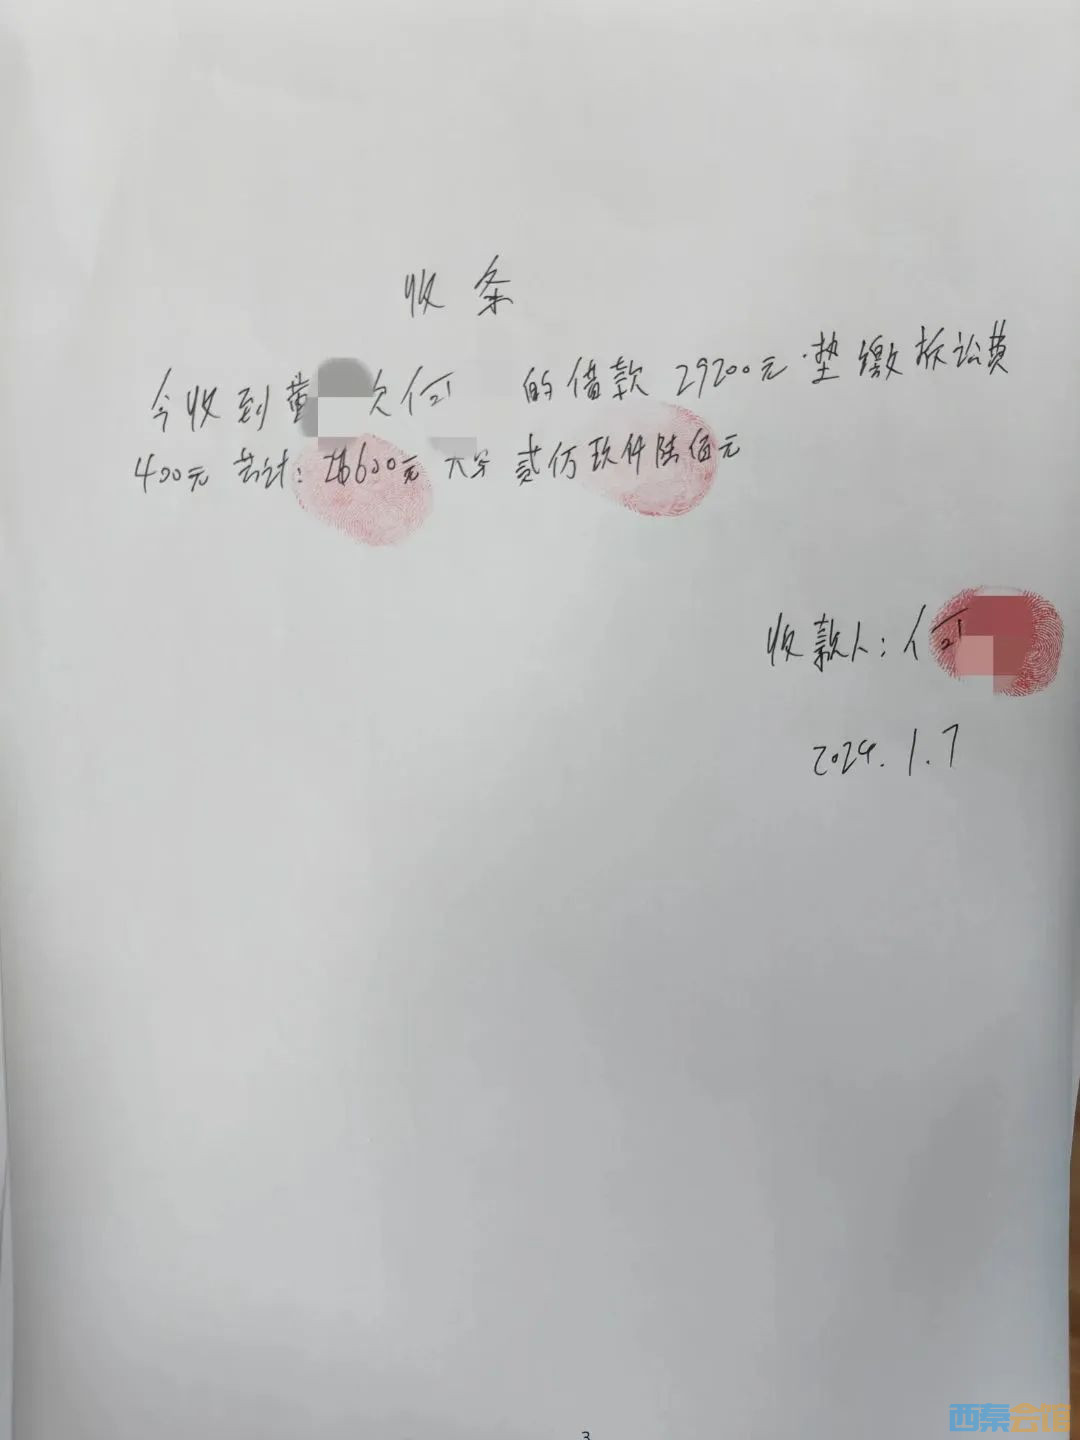 收条
今收到黄 欠何 的借款29200元.垫缴诉讼费
400元 共计: 600元 大写 贰仟玖仟陆佰元
收款人:何
2024.1.7
3
西秦会馆